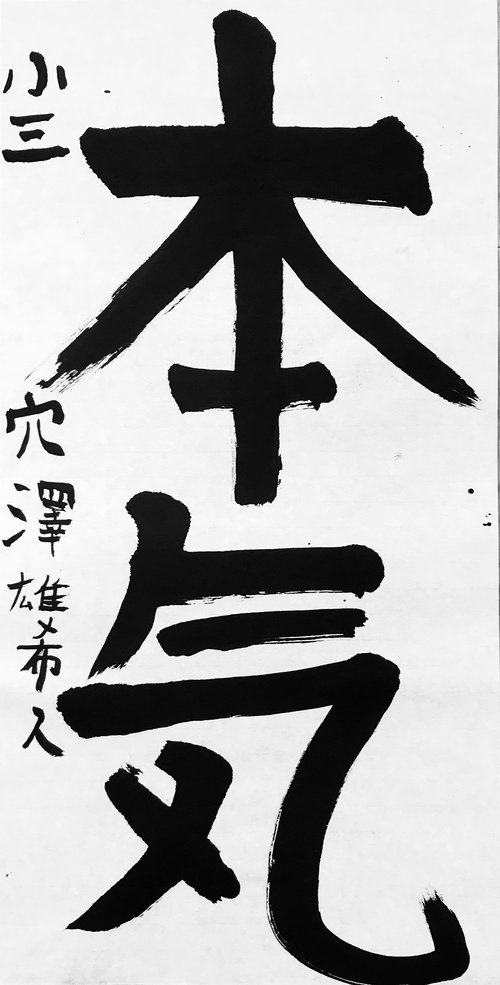 本気
小三
穴澤雄希人